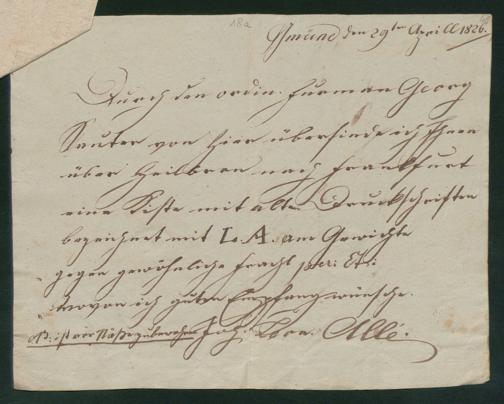 18a
Gmünd den 29ten Aprill 1826.
Durch den ordin. Furman Georg
Sauter von hier übersende ich Ihnen
über Heilbron nach Frankfurt
eine Kiste mit alten Druckschriften
bezeichnet mit L. A. am Gewichte
gegen gewöhnliche Fracht
wovon ich guten Empfang wünsche.
NB: ist vor Näße zu bewahren Joh.